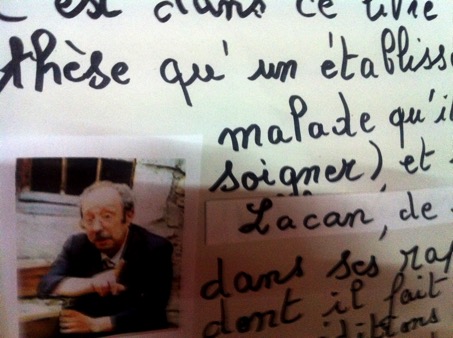 c'est dans ce livre
thèse qu'un établiss
malade qu'il
soigner), et
Lacan, de
dans ses rap
dont il fait
ditions